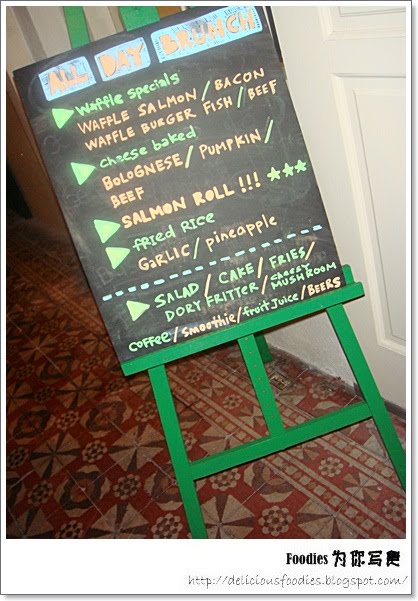 ALL DAY BRUNCH
Waffle specials
WAFFLE SALMON / BACON
WAFFLE BURGER FISH / BEEF
cheese baked
BOLOGNESE / PUMPKIN /
BEEF
SALMON ROLL !!! ★★★
fried Rice
GaRLiC / pineapple
SALAD / CAKE / FRIES /
DORY FRITTER / CHEESY MUSHROOM
COFFEE / smoothie / fruit Juice / BEERS
Foodies 为你写食
http://deliciousfoodies.blogspot.com/